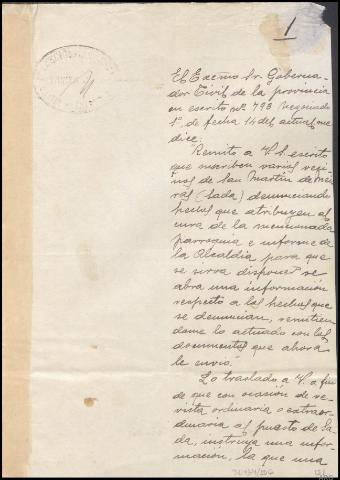 1
El Excmo Sr. Goberna-
dor Civil de la provincia
en escrito nº 793 Negociado
1º, de fecha 14 del actual, me
dice:
"Remito a V.S. escrito
que suscriben varios veci-
nos de San Martin de Mei-
rás (Sada) denunciando
hechos que atribuyen al
cura de la mencionada
parroquia e informe de
la Alcaldía para que
se sirva disponer se
abra una información
respecto a los hechos que
se denuncian, remitien-
dome lo actuado con los
documentos que ahora
le envio."
Lo traslado a V. a fin
de que con ocasión de re-
vista ordinaria o extraor-
dinaria al puesto de Sa-
da, instruya una infor-
mación, la que una